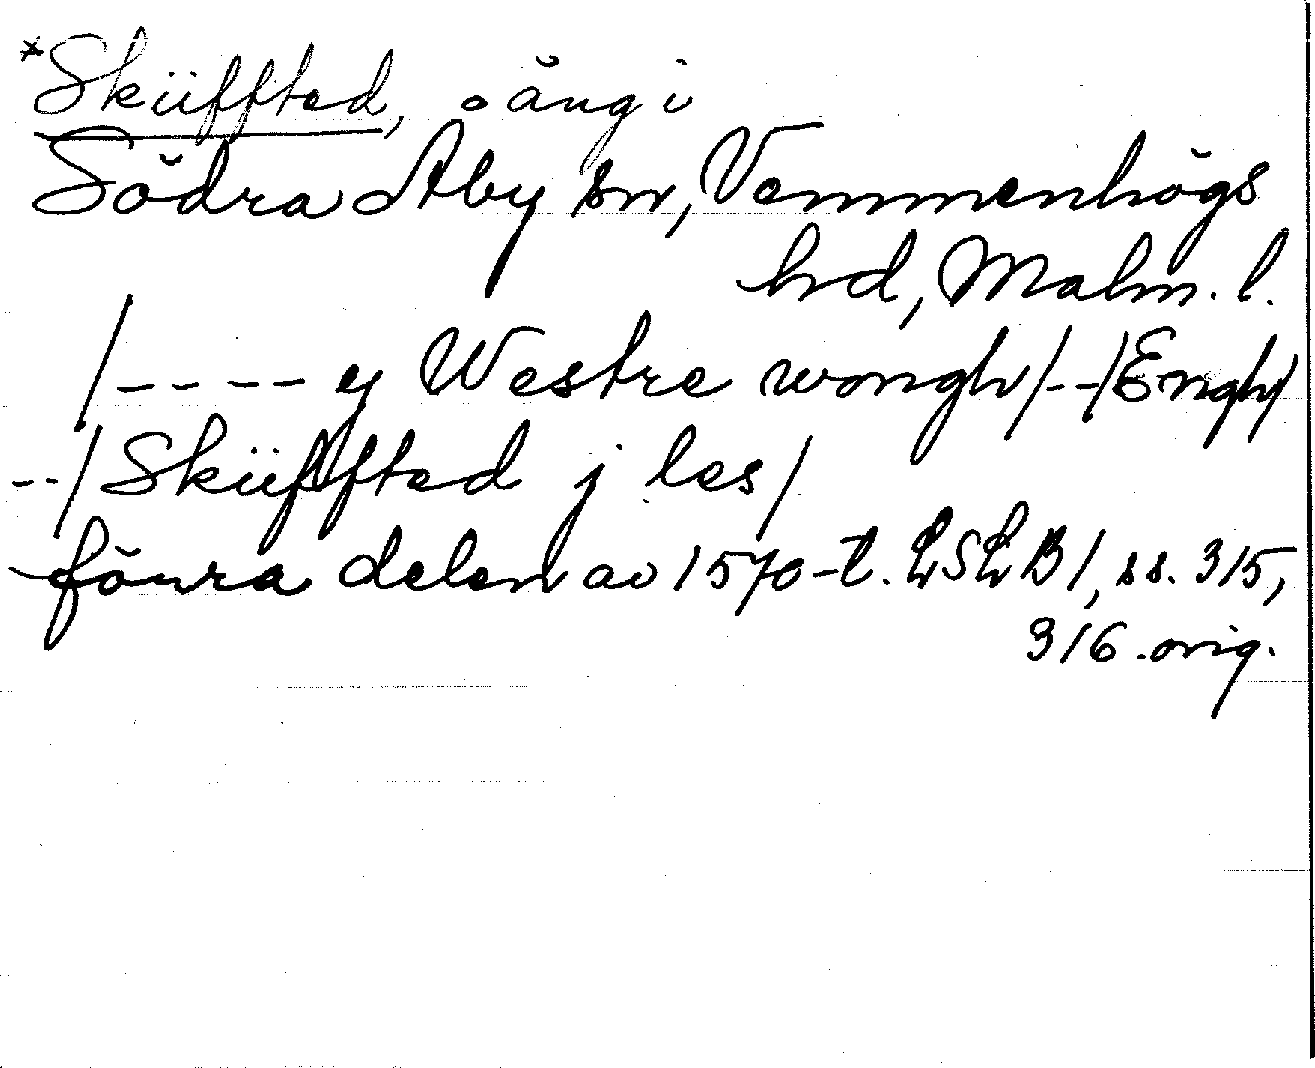 *Sküffted, äng i
Södra Åby sn, Vemmenhögs
hd, Malm. l.
/---- y Westre wongh/--/Engh/
--/Sküffted j les/
förra delen av 1570-t. LSLB1, ss. 315,
316. orig.